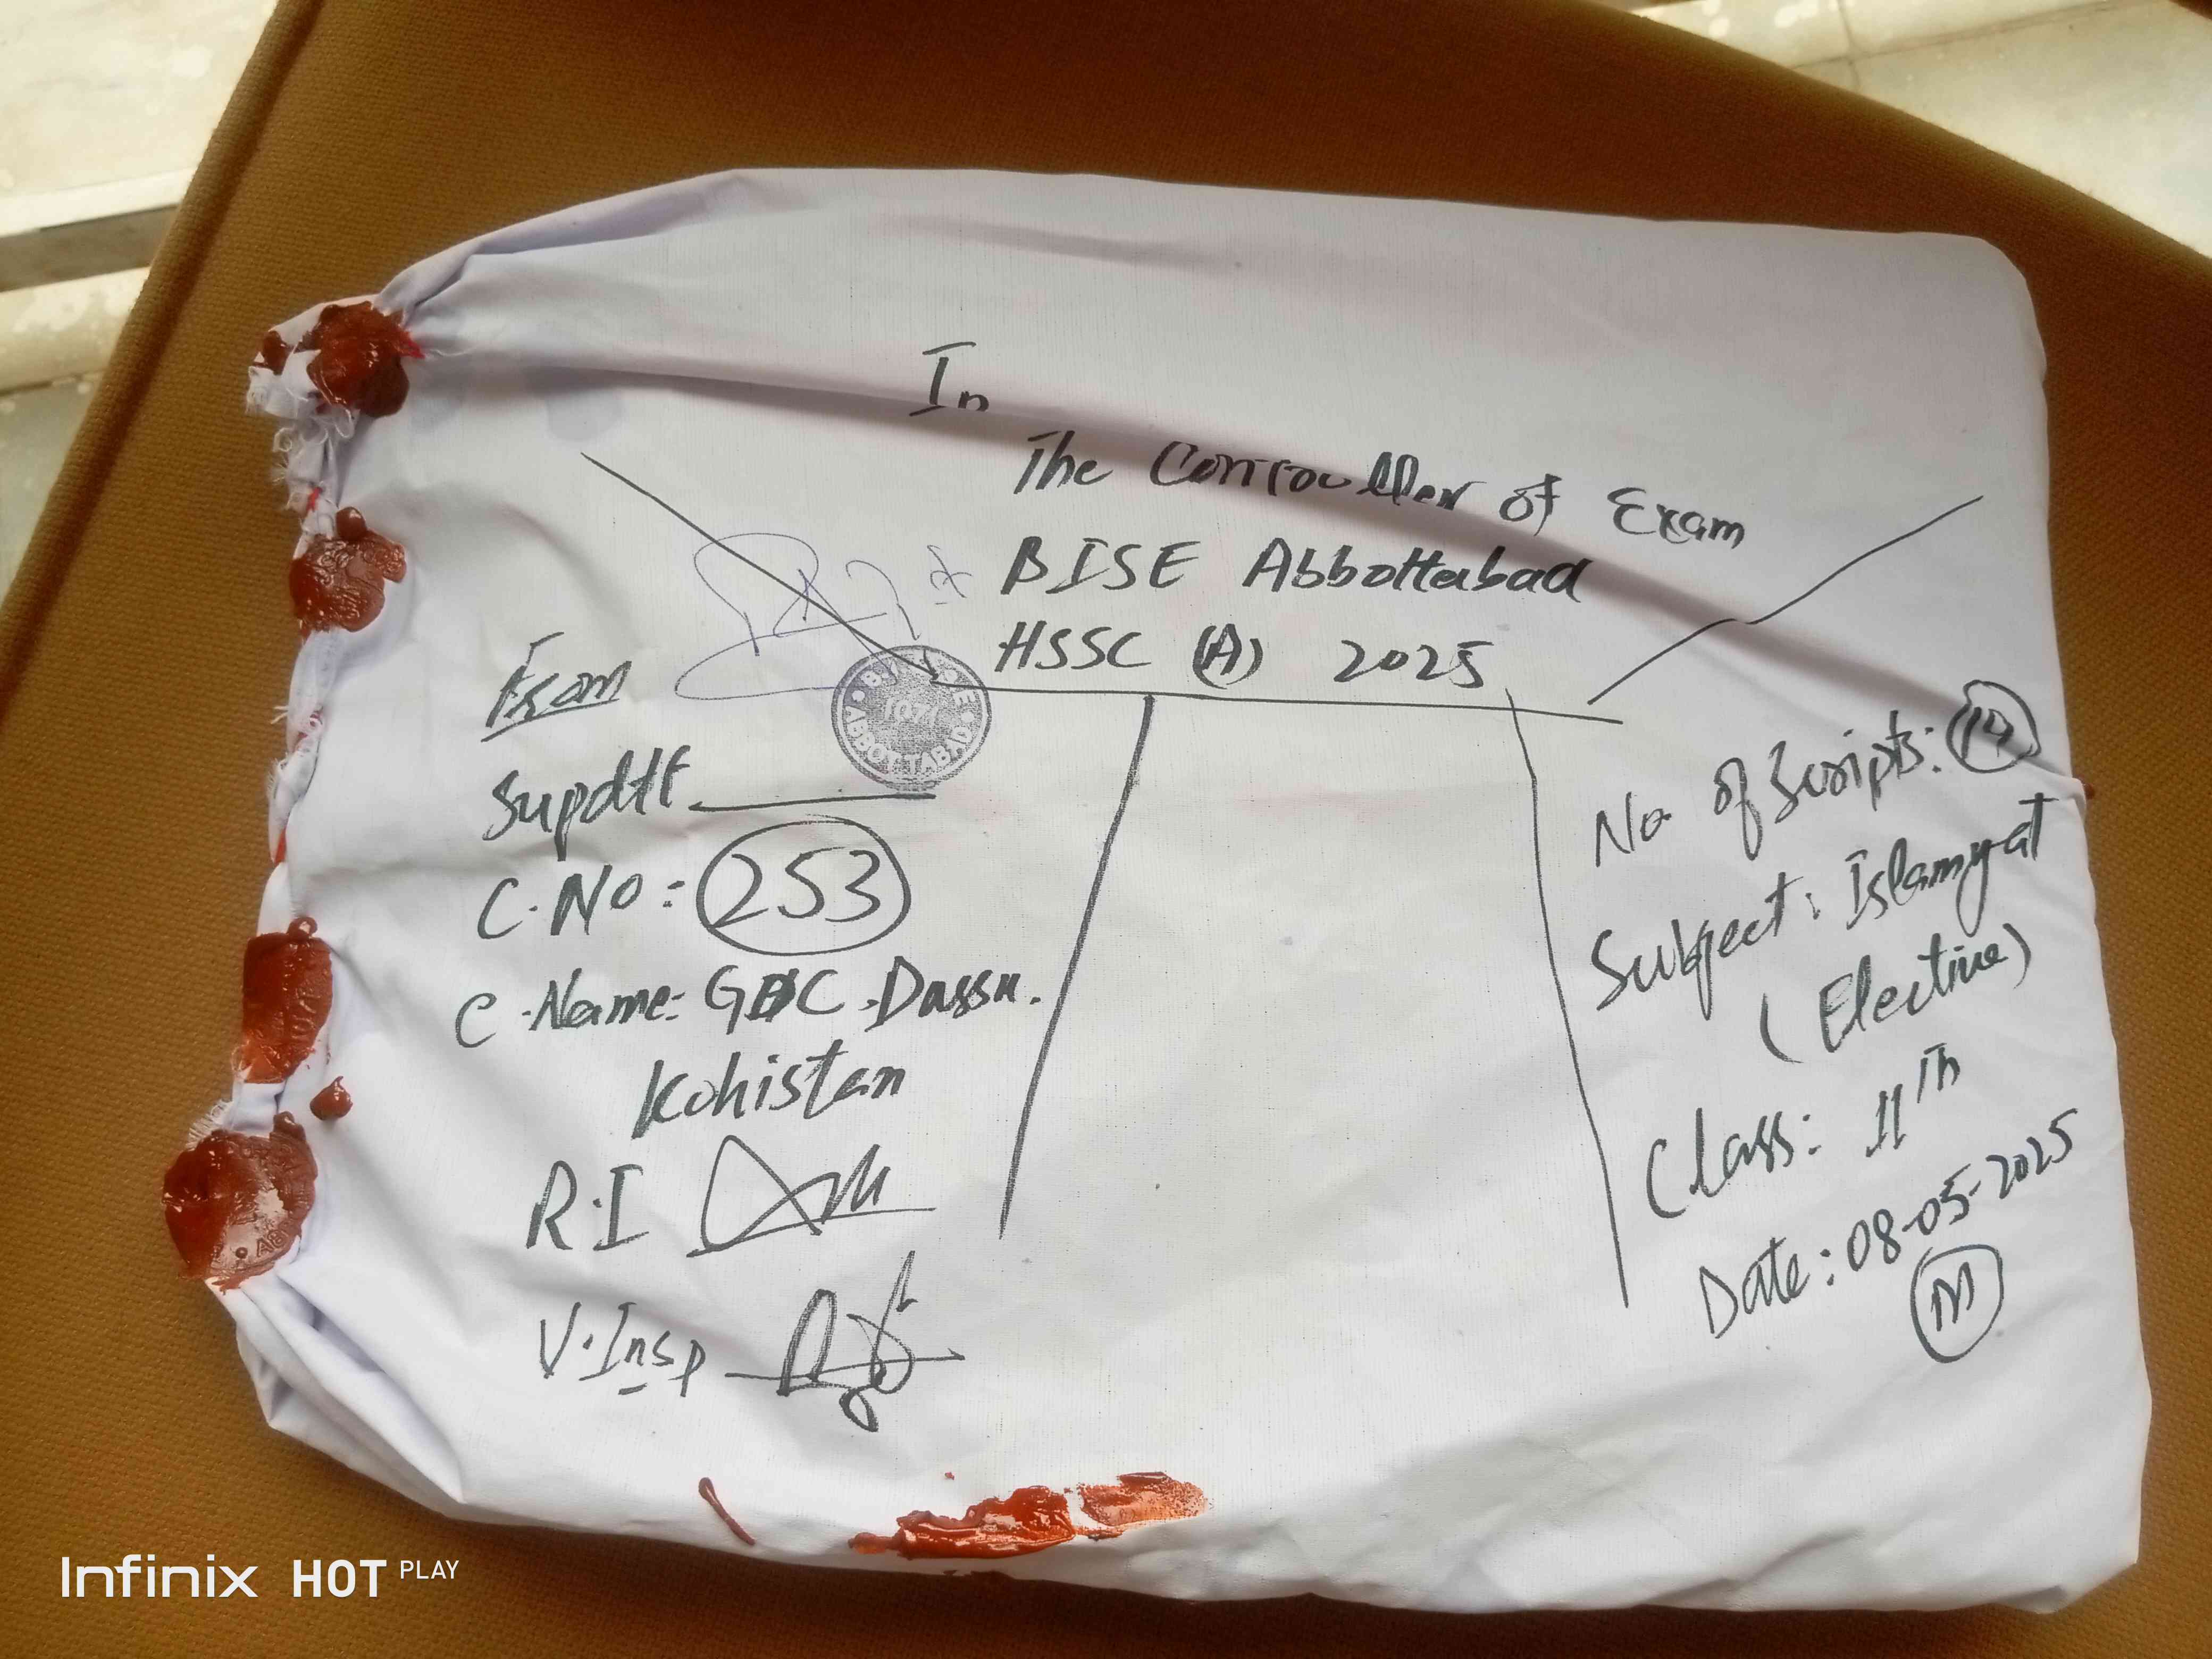 To
The Controuller of Exam
BISE Abbottabad
HSSC (A) 2025
From
Supdtt
C.No: 253
C.Name: GDC Dassu.
Kohistan
R.I
V.Insp
No of Scripts:
Subject: Islamyat
(Elective)
Class: 11th
Date: 08-05-2025
M
ABBOTTABAD
Infinix HOT PLAY